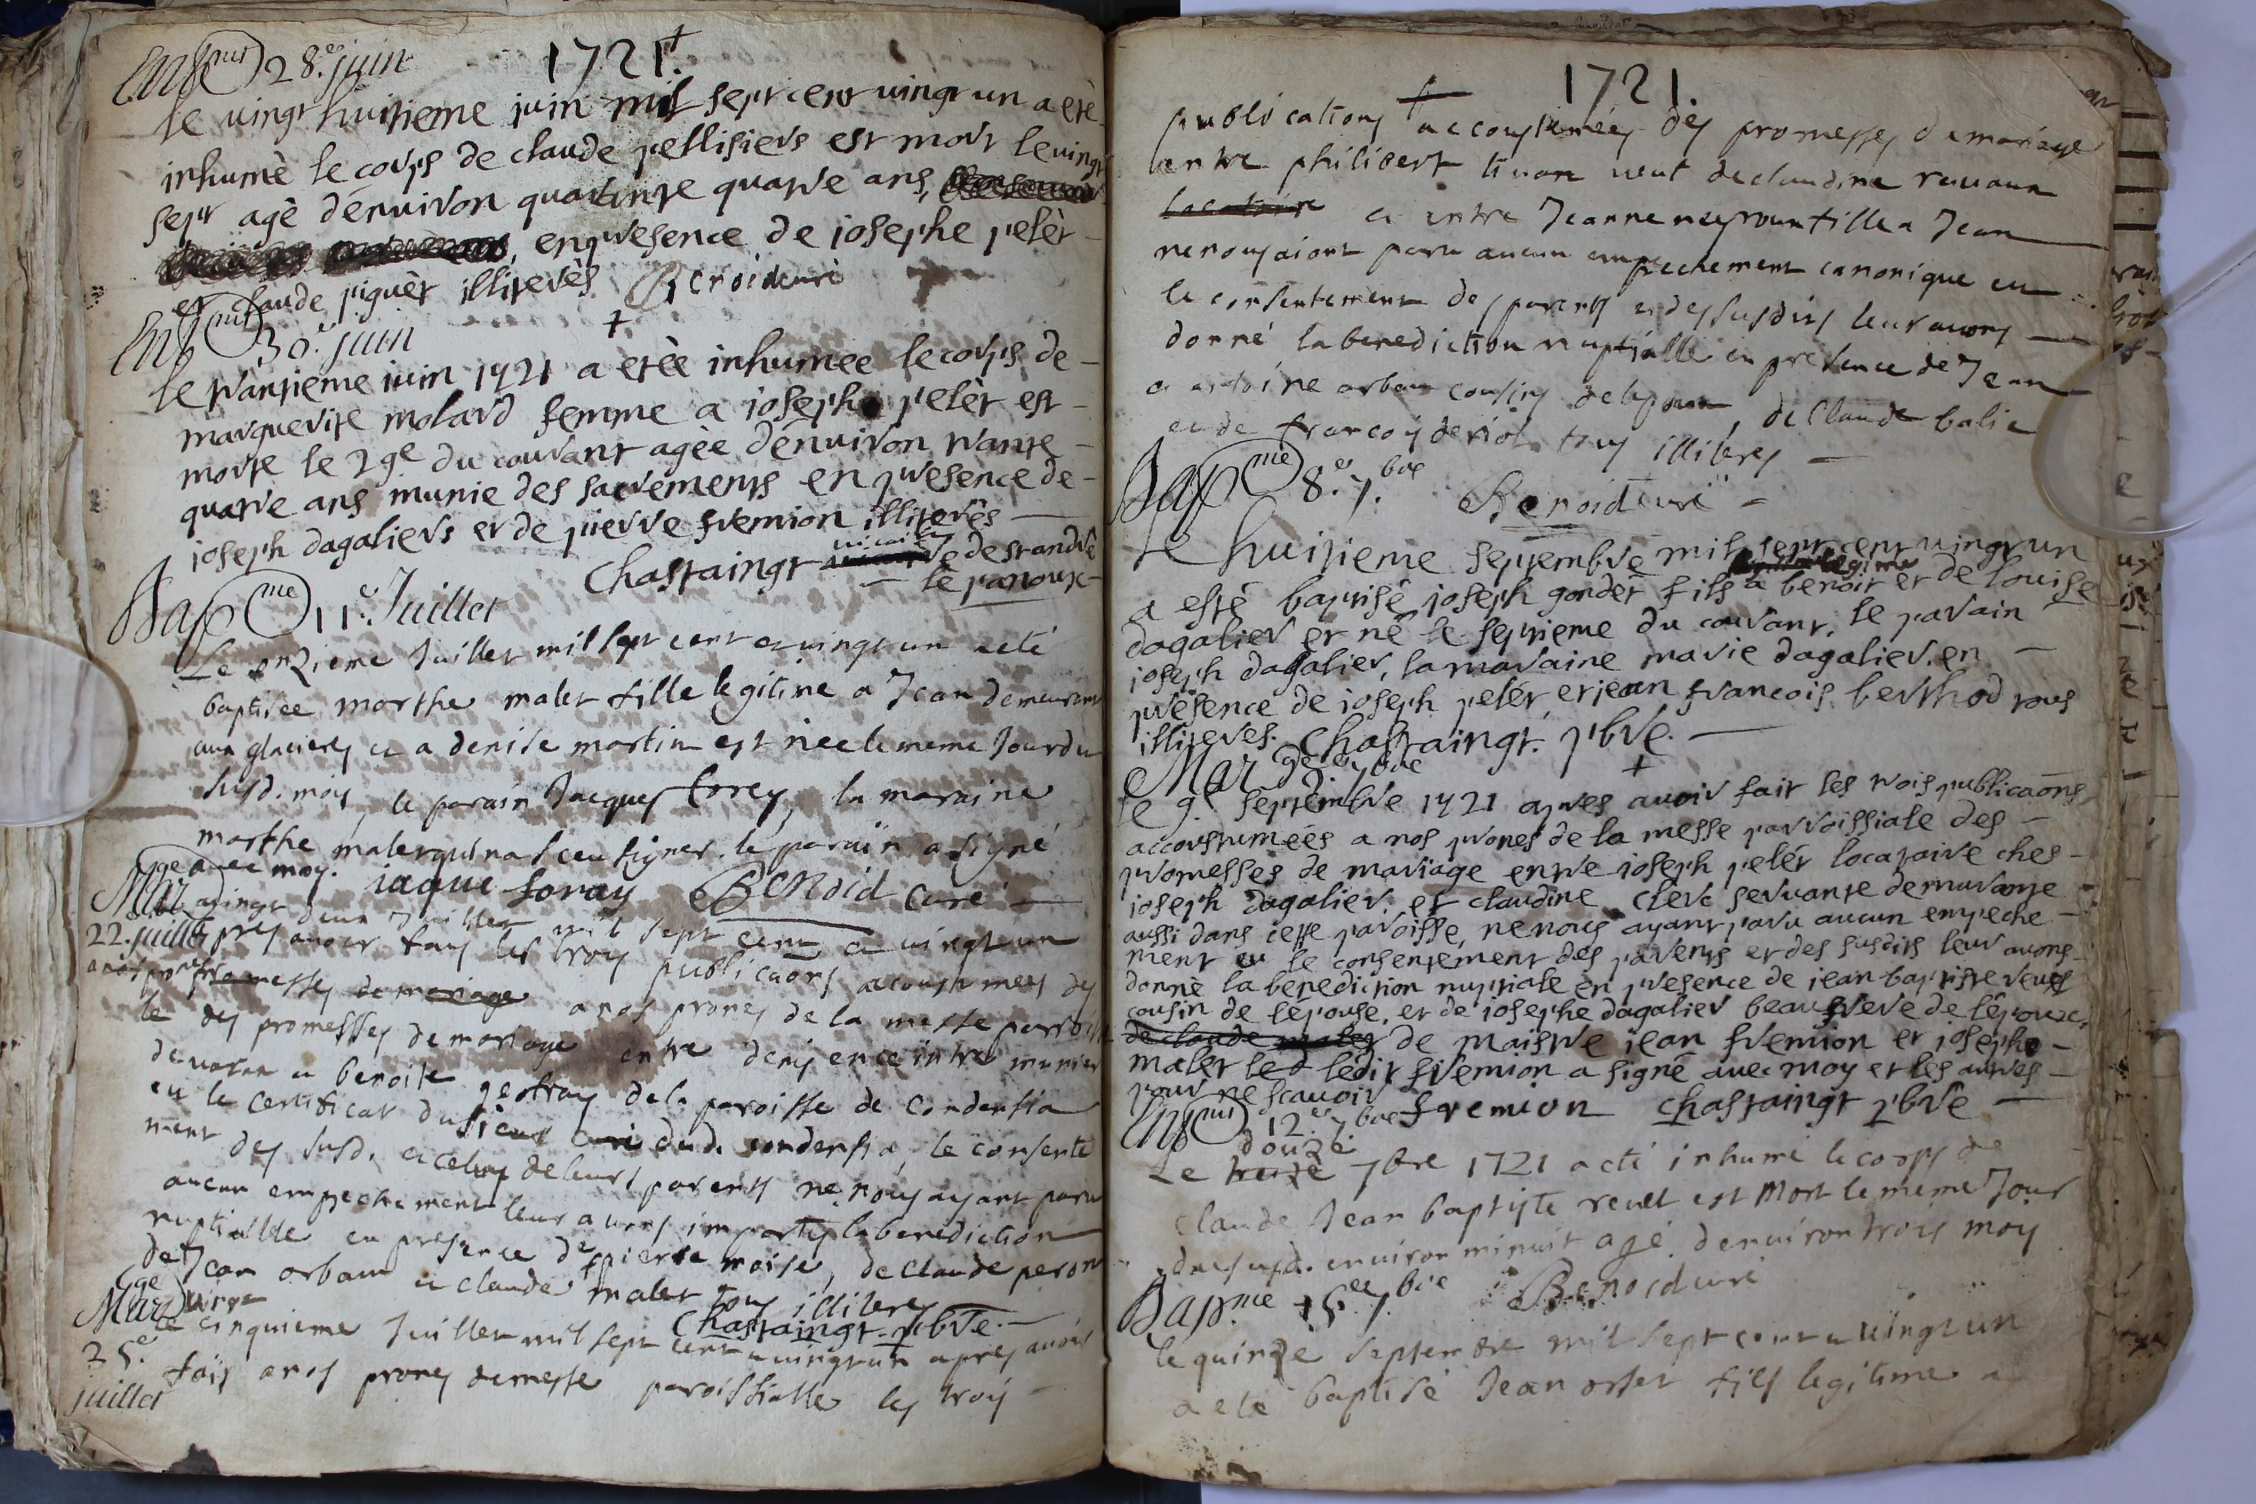 1721.
28.e juin
le vingt huitieme juin mil sept cent vingt un a eté
inhumé le corps de claude pellisiers est mort le vingt
sept agé denviron quarante quatre ans,
en presence de iosephe pelèt
et claude piguèt illiterès Benoid curé
30.e juin
le trantieme juin 1721 a etée inhumee le corps de
marguerite molard femme a ioseph pelèt est
morte le 29e du courant agèe denviron trante
quatre ans munie des sacréments en presence de
ioseph dagaliers et de pierre fremion illiterès
Chastaingt vicaire de st andré
le panoux
Bapme 11.e Juillet
Le onzieme Juillet mil sept cent et vingt un a eté
baptisée marthe malet fille legitime a Jean demeurant
aux glacieres et a denise martin est née le meme Jour du
susd. mois, le parain Jacques forey, la maraine
marthe malet qui na sceu signer. le parain a signé
avec moy. iaque foray Benoid Curé
Marge
22. juillet
vingt deux Juillet mil sept cent et vingt un
apres avoir fais les troys publicaons acoustumees des
promesses de mariage a nos prones de la messe parroissia
le des promesses de mariage entre denis
et benoite de la paroisse de Condeissia
eu le certificat du sieur curé dud. condeissia, le consente
ment des susd. et celuy de leurs parents ne nous ayant paru
aucun empechement leur avons imparty la benediction
nuptialle en presence de pierre moise, de claude peron
de Jean orban et claude malet tous illiteres
Chastaingt pbre
Marge
25.e
juillet
cinquieme Juillet mil sept cent et vingt un apres avoir
fais a nos prones de messe paroissialle les troys
1721.
publications accoustumées des promesses de mariage
entre philibert tivan veuf de claudine
locataire et entre Jeanne fille a Jean
ne nous aiant paru aucun empechement canonique eu
le consentement des parents et des susdits leur avons
donné la benediction nuptialle en presence de Jean
et antoine orban cousins de lepoux, de Claude balie
et de francoys deriot tous illiteres
Bapme 8.e 7.bre Benoid curé
Le huitieme septembre mil sept cent vingt un
a esté baptisé ioseph gondet fils a benoit et de louise
dagalier et né le septieme du courant, le parain
ioseph dagalier, la maraine marie dagalier, en
presence de ioseph pelét, et jean francois berthod tous
illiteres. Chastaingt. pbre.
Marge 9e 7bre
le 9.e septembre 1721 apres avoir fait les trois publicaons
accoustumées a nos prones de la messe parroissiale des
promesses de mariage entre ioseph pelét locataire ches
ioseph dagalier. et claudine clerc servante demeurante
aussi dans cette paroisse, ne nous ayant paru aucun empeche
ment eu le consentement des parents et des susdits leur avons
donné la benediction nuptiale en presence de iean baptiste
cousin de l'epouse, et de iosephe dagalier beau frere de lépoux,
de claude malet de maistre iean fremion et iosephe
malet ledit fremion a signé avec moy et les autres
pour ne scavoir fremion Chastaingt pbre
12.e 7bre
douze
Le treize 7bre 1721 a eté inhumé le corps de
Claude Jean baptiste revel est mort le meme Jour
du susd. environ minuit agé denviron trois mois
Bapme 15.e 7.bre Benoid curé
le quinze septembre mil sept cent et vingt un
a eté baptisé Jean orset fils legitime a